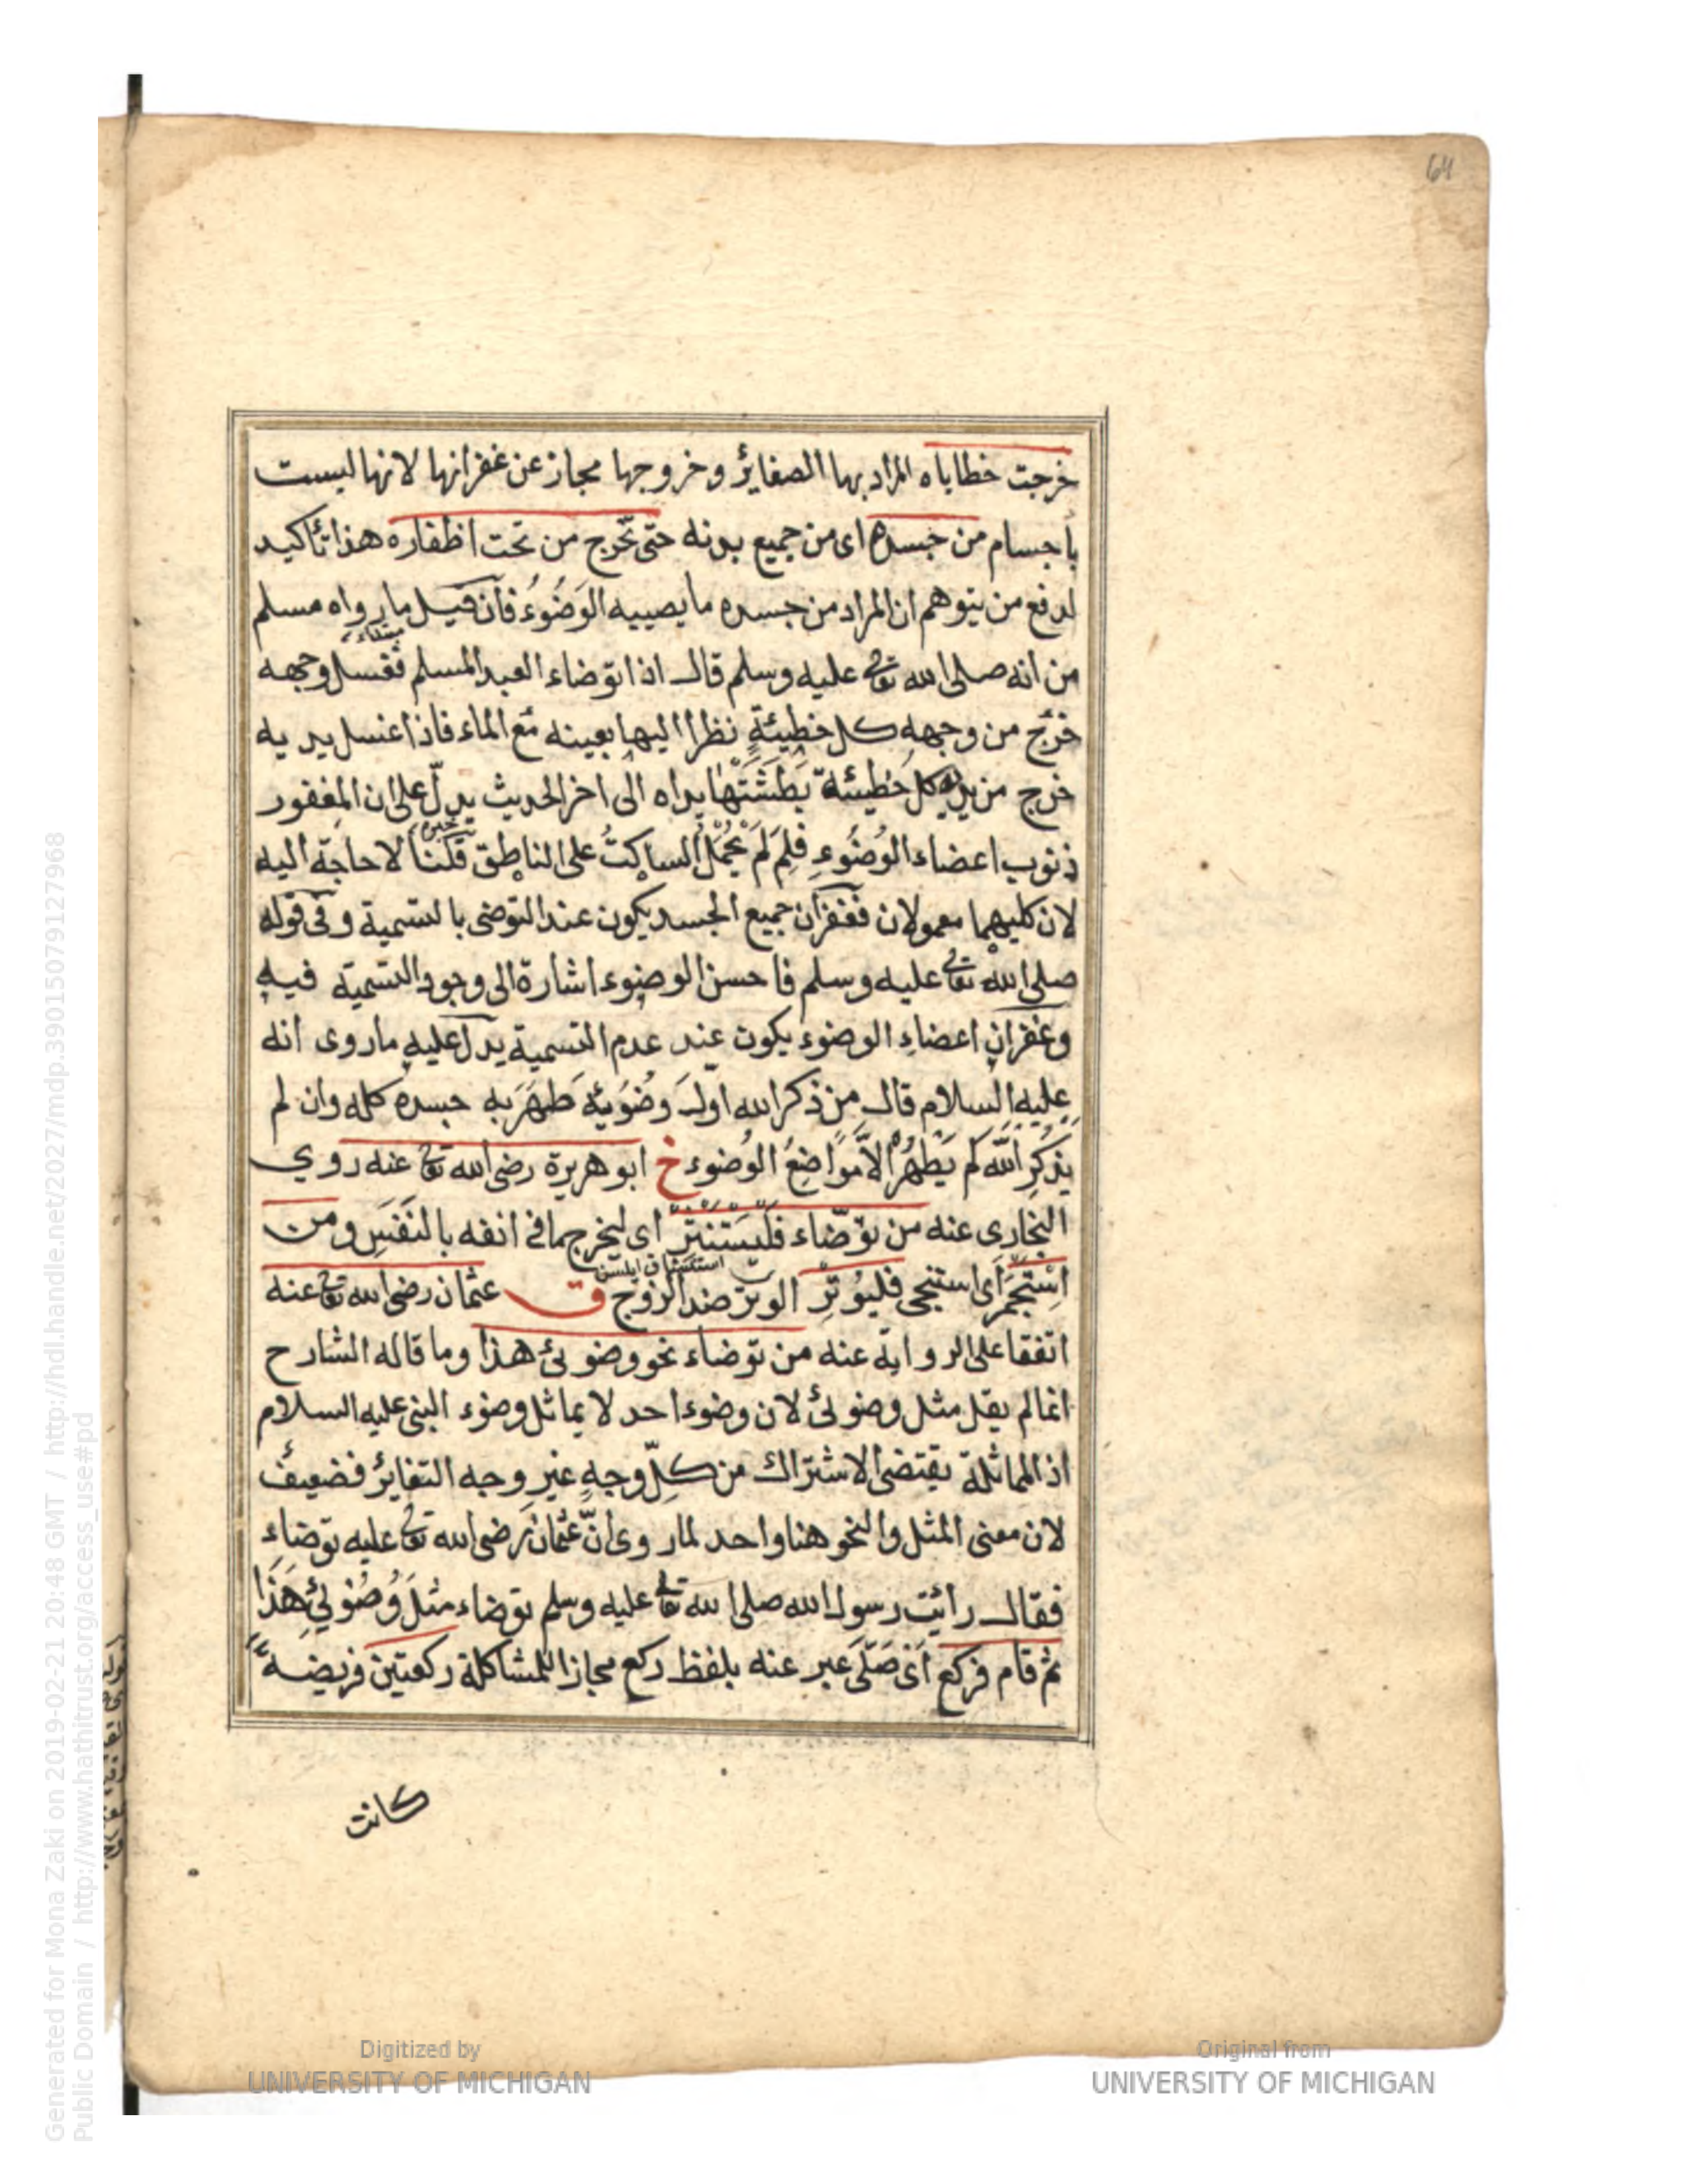 64
خرجت خطاياه المراد بها الصغاير وخروجها مجاز عن غفرانها لانها ليست
باجسام من جسده اى من جميع بدنه حتى تخرج من تحت اظفاره هذا تأكيد
لدفع من يتوهم ان المراد من جسده ما يصيبه الوَضُوءُ فان قيل ما رواه مسلم
مبتداء
من انه صلى الله تعالى عليه وسلم قال اذا توضاء العبد المسلم فغسل وجهه
خرج من وجهه كل خطيئةٍ نظرا اليها بعينه مع الماء فاذا غسل يديه
خرج من يديه كل خطيئة بَطَشَتْها يداه الى اخر الحديث يدلّ على ان المغفور
خبره
ذنوب اعضاء الوُضُوءِ فلِمَ لَمْ يُحْمَل الساكتُ على الناطِق قلنا لا حاجة اليه
لان كليهما معمولان فغفران جميع الجسد يكون عند التوضى بالتسمية وفى قوله
صلى الله تعالى عليه وسلم فاحسن الوضوء اشارة الى وجود التسمية فيه
وغفران اعضاءِ الوضوء يكون عند عدم التسمية يدل عليه ماروى انه
عليه السلام قال من ذكر الله اولَ وضُوَئِهِ طَهُرَ بِهِ جسده كله وان لم
يذكرِ الله لم يَطْهُرْ الاَّ مواضعُ الوُضوء خ ابو هريرة رضى الله تعالى عنه روى
البخارى عنه من توضّاء فَلْيَسْتَنْثِرْ اى ليخرج ما فى انفه بالنَفَسِ ومن
استنشاق ايلسن
اِسْتَجْمَرَ اى استنجى فليُوْتِرْ الوتر ضد الزوج ق عثمان رضى الله تعالى عنه
اتفقا على الرواية عنه من توضاء نحو وضوئى هذا وما قاله الشارح
انما لم يقل مثل وضوئى لان وضوء احد لا يماثل وضوء النبى عليه السلام
اذ المماثلة يقتضى الاشتراك من كلِّ وجهٍ غير وجه التغاير فضعيف
لان معنى المثل والنحو هنا واحد لما روى انّ عثمان رضى الله تعالى عليه توضاء
فقال رأيت رسول الله صلى الله تعالى عليه وسلم توضاء مثلَ وُضُوئِى هَذَا
ثم قام فركع اَىْ صَلَّى عبر عنه بلفظ ركع مجازا للمشاكلة ركعتين فريضةً
كانت
Generated for Mona Zaki on 2019-02-21 20:48 GMT / http://hdl.handle.net/2027/mdp.39015079127968
Public Domain / http://www.hathitrust.org/access_use#pd
Digitized by
UNIVERSITY OF MICHIGAN
Original from
UNIVERSITY OF MICHIGAN